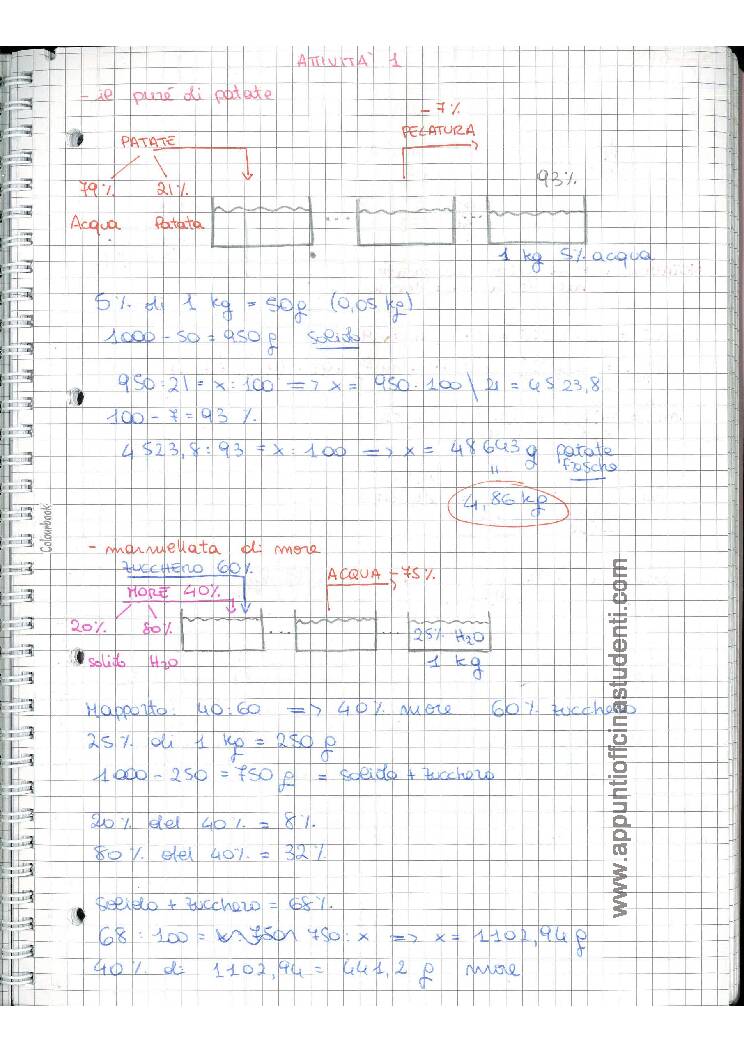 ATTIVITÀ 1
- il purè di patate
- 7%
PATATE PELATURA
79% 21% 93%
Acqua Patata
1 kg 5% acqua
5% di 1 kg = 50g (0,05 kg)
1000 - 50 = 950 g solido
950 : 21 = x : 100 => x = 950 · 100 \ 21 = 4523,8
100 - 7 = 93 %
4523,8 : 93 = x : 100 => x = 48643 g patate
fresche
"
4,86 kg
Colourbook
- marmellata di more
ZUCCHERO 60% ACQUA - 75%
MORE 40%
20% 80% 25% H2O
solido H2O 1 kg
Rapporto: 40:60 => 40% more 60% zucchero
25% di 1 kg = 250 g
1000 - 250 = 750 g = solido + zucchero
20% del 40% = 8%
80% del 40% = 32%
solido + zucchero = 68%
68 : 100 = 750 : x => x = 1102,94 g
40% di 1102,94 = 441,2 g more
www.appuntiofficinastudenti.com